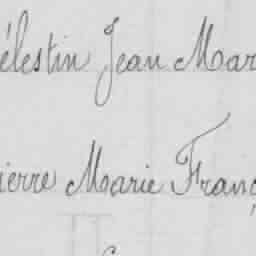 élestin Jean Mar
ierre Marie Franç